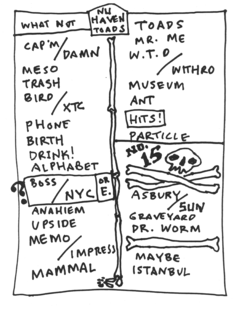 WHAT NOT
NU HAVEN TOADS
CAP'M / DAMN
MESO
TRASH
BIRD / XTC
PHONE
BIRTH
DRINK!
ALPHABET
BOSS / NYC
OR E.
ANAHIEM
UPSIDE
MEMO / IMPRESS
MAMMAL
TOADS
MR. ME
W.T.D / WITHRO
MUSEUM
ANT
HITS!
PARTICLE
NO. 15
ASBURY / SUN
GRAVEYARD
DR. WORM
MAYBE
ISTANBUL